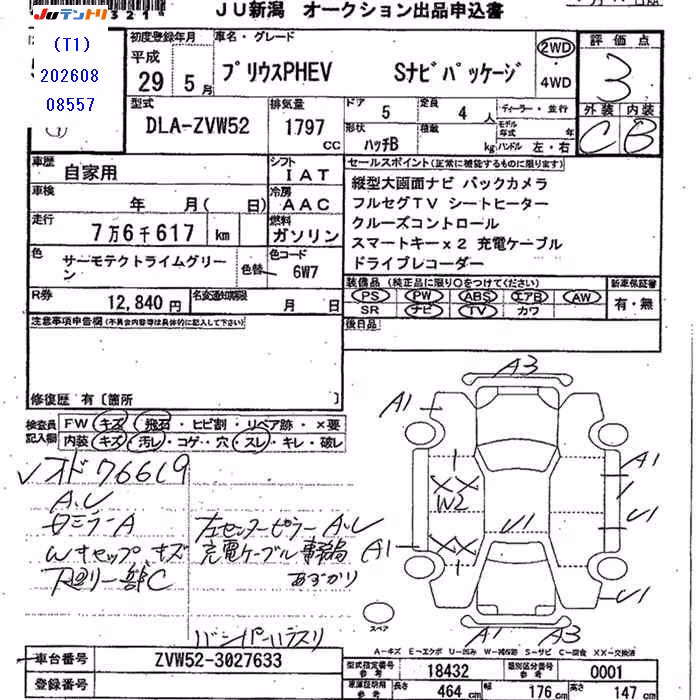 JUテントリ
ＪＵ新潟 オークション出品申込書
(T1)
202608
08557
初度登録年月
平成
29 5月
車名・グレード
プリウスPHEV Sナビパッケージ
2WD
4WD
評価点
3
外装 内装
C B
型式
DLA-ZVW52
排気量
1797 CC
ドア
5
定員
4 人
形状
ハッチB
積載
kg
ディーラー・並行
モデル年式 年
ハンドル 左・右
車歴
自家用
シフト
IAT
車検
年 月( 日)
冷房
AAC
走行
7万6千617 km
燃料
ガソリン
色
サーモテクトライムグリーン
色替
色コード
6W7
R券
12,840円
名変通知期限
月 日
セールスポイント(正常に機能するものに限ります)
縦型大画面ナビ バックカメラ
フルセグTV シートヒーター
クルーズコントロール
スマートキーx2 充電ケーブル
ドライブレコーダー
装備品 (純正品に限り○をつけてください)
PS PW ABS エアB AW
SR ナビ TV カワ
新車保証書
有・無
後日品
注意事項申告欄(不具合内容等は具体的に記入して下さい)
修復歴 有〔箇所 〕
検査員記入欄
FW キズ・飛石・ヒビ割・リペア跡・×要
内装 キズ・汚レ・コゲ・穴・スレ・キレ・破レ
✓オド76619
A.U
左センターピラーA.U
Wキャップキズ
充電ケーブル事務局
あずかり
下廻リ一部C
A3
A1
A1
XX
W2
U1
U1
XX
A1
U1
A1
A3
スペア
A－キズ E－エクボ U－凹み W－補修跡 S－サビ C－腐食 XX－交換済
車台番号
ZVW52-3027633
登録番号
型式指定番号
18432
類別区分番号
0001
長さ 464 cm
幅 176 cm
高さ 147 cm